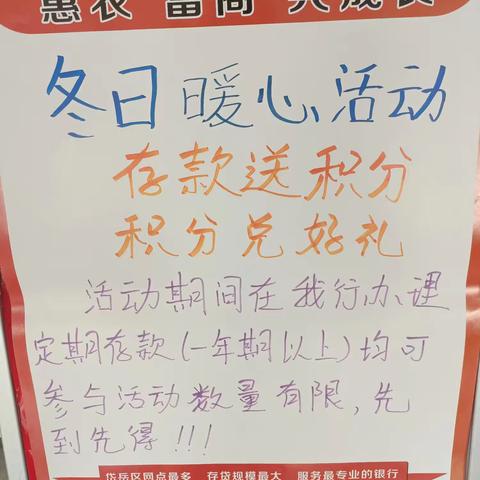 惠农 富商 共成长
冬日暖心活动
存款送积分
积分兑好礼
活动期间在我行办理
定期存款(一年期以上)均可
参与活动数量有限,先
到先得!!!
岱岳区网点最多 存贷规模最大 服务最专业的银行